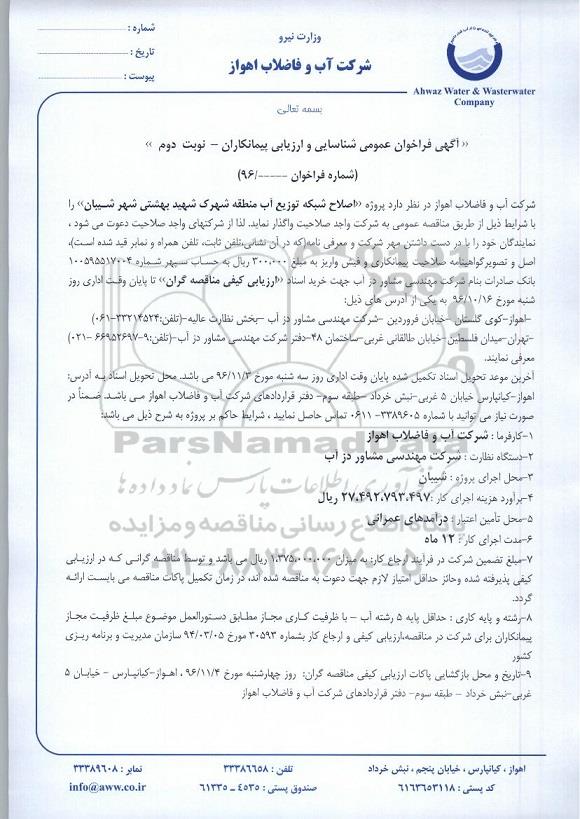 شماره :
تاریخ :
پیوست :
وزارت نیرو
شرکت آب و فاضلاب اهواز
Ahwaz Water & Wasterwater
Company
بسمه تعالی
‹‹ آگهی فراخوان عمومی شناسایی و ارزیابی پیمانکاران – نوبت دوم ››
(شماره فراخوان -----/۹۶)
شرکت آب و فاضلاب اهواز در نظر دارد پروژه ‹‹اصلاح شبکه توزیع آب منطقه شهرک شهید بهشتی شهر شیبان›› را
با شرایط ذیل از طریق مناقصه عمومی به شرکت واجد صلاحیت واگذار نماید. لذا از شرکتهای واجد صلاحیت دعوت می شود ،
نمایندگان خود را با در دست داشتن مهر شرکت و معرفی نامه(که در آن نشانی،تلفن ثابت، تلفن همراه و نمابر قید شده است)،
اصل و تصویرگواهینامه صلاحیت پیمانکاری و فیش واریز به مبلغ ۳۰۰,۰۰۰ ریال به حساب سپهر شماره ۱۰۰۵۹۵۵۱۷۰۰۴
بانک صادرات بنام شرکت مهندسی مشاور دز آب جهت خرید اسناد ‹‹ارزیابی کیفی مناقصه گران›› تا پایان وقت اداری روز
شنبه مورخ ۹۶/۱۰/۱۶ به یکی از آدرس های ذیل:
-اهواز-کوی گلستان -خیابان فروردین -شرکت مهندسی مشاور دز آب -بخش نظارت عالیه-(تلفن:۳۳۲۱۴۵۲۴-۰۶۱)
-تهران-میدان فلسطین-خیابان طالقانی غربی-ساختمان ۴۸-دفتر شرکت مهندسی مشاور دز آب-(تلفن:۹-۶۶۹۵۲۶۹۷ -۰۲۱)
معرفی نمایند.
آخرین موعد تحویل اسناد تکمیل شده پایان وقت اداری روز سه شنبه مورخ ۹۶/۱۱/۳ می باشد. محل تحویل اسناد به آدرس:
اهواز-کیانپارس خیابان ۵ غربی-نبش خرداد -طبقه سوم- دفتر قراردادهای شرکت آب و فاضلاب اهواز می باشد. ضمناً در
صورت نیاز می توانید با شماره ۳۳۸۹۶۰۵- ۰۶۱۱ تماس حاصل نمایید ، شرایط حاکم بر پروژه به شرح ذیل می باشد:
۱-کارفرما : شرکت آب و فاضلاب اهواز
۲-دستگاه نظارت : شرکت مهندسی مشاور دز آب
۳-محل اجرای پروژه : شیبان
۴-برآورد هزینه اجرای کار :۲۷،۴۹۲،۷۹۳،۴۹۷ ریال
۵-محل تأمین اعتبار : درآمدهای عمرانی
۶-مدت اجرای کار : ۱۲ ماه
۷-مبلغ تضمین شرکت در فرآیند ارجاع کار: به میزان ۱،۳۷۵،۰۰۰،۰۰۰ ریال می باشد و توسط مناقصه گرانی که در ارزیابی
کیفی پذیرفته شده وحائز حداقل امتیاز لازم جهت دعوت به مناقصه شده اند، در زمان تکمیل پاکات مناقصه می بایست ارائه
گردد.
۸-رشته و پایه کاری : حداقل پایه ۵ رشته آب – با ظرفیت کاری مجاز مطابق دستورالعمل موضوع مبلغ ظرفیت مجاز
پیمانکاران برای شرکت در مناقصه،ارزیابی کیفی و ارجاع کار بشماره ۳۰۵۹۳ مورخ ۹۴/۰۳/۰۵ سازمان مدیریت و برنامه ریزی
کشور
۹-تاریخ و محل بازگشایی پاکات ارزیابی کیفی مناقصه گران: روز چهارشنبه مورخ ۹۶/۱۱/۴ ، اهواز-کیانپارس - خیابان ۵
غربی-نبش خرداد – طبقه سوم- دفتر قراردادهای شرکت آب و فاضلاب اهواز
ParsNamadData
فرآوری اطلاعات پارس نماد داده ها
پایگاه اطلاع رسانی مناقصه و مزایده
اهواز ، کیانپارس ، خیابان پنجم ، نبش خرداد
تلفن : ۳۳۳۸۶۶۵۸
نمابر : ۳۳۳۸۹۶۰۸
کد پستی : ۶۱۶۳۶۵۳۱۱۸
صندوق پستی : ۴۵۳۵ ـ ۶۱۳۳۵
info@aww.co.ir